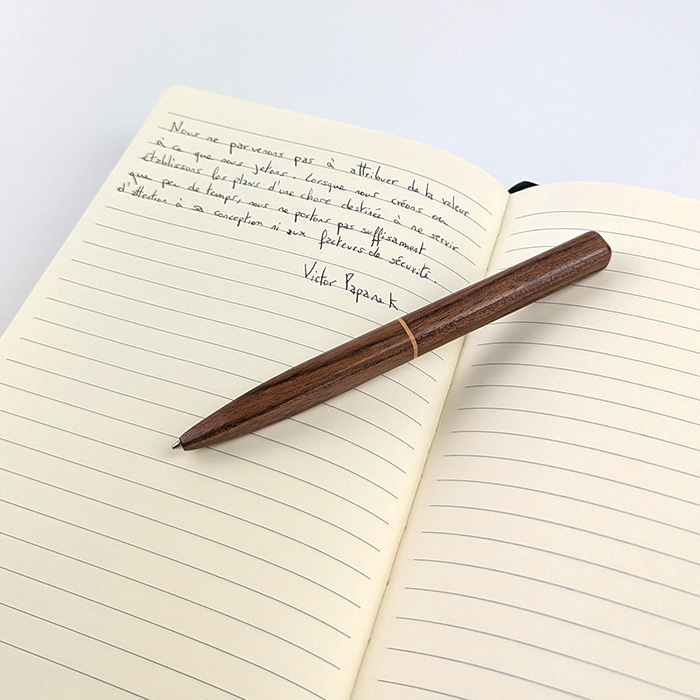 Nous ne parvenons pas à attribuer de la valeur
à ce que nous jetons. Lorsque nous créons ou
établissons les plans d'une chose destinée à ne servir
que peu de temps, nous ne portons pas suffisamment
d'attention à sa conception ni aux facteurs de sécurité.
Victor Papanek